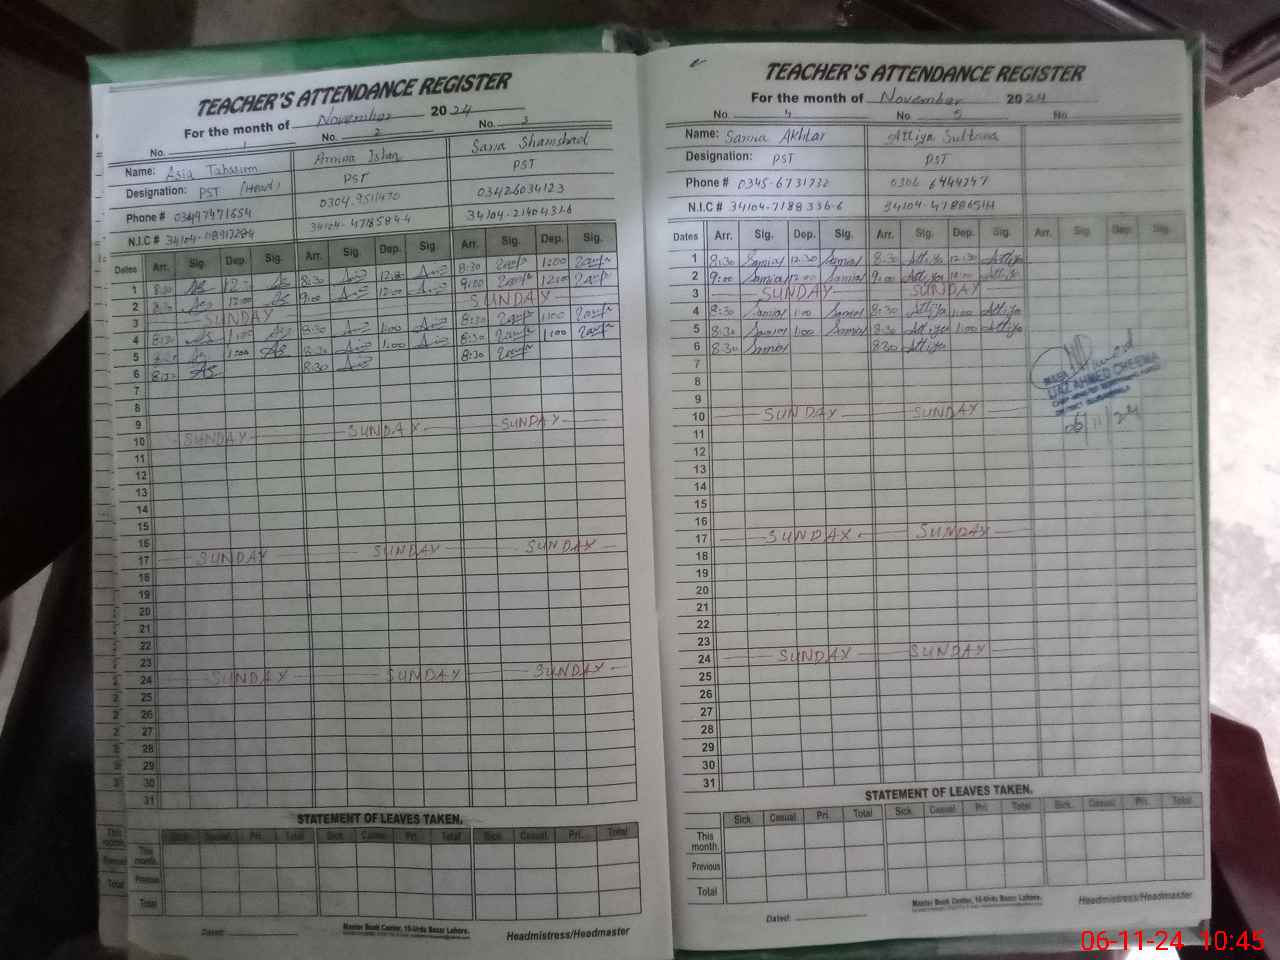 TEACHER'S ATTENDANCE REGISTER
For the month of November 2024
No. 1 No. 2 No. 3
Name: Asia Tabasum Amina Ishaq Sana Shamshad
Designation: PST (Head) PST PST
Phone # 03447471654 0304-9511470 03426034123
N.I.C # 34104- 34104- 34104-2140431-6
Dates Arr. Sig. Dep. Sig. Arr. Sig. Dep. Sig. Arr. Sig. Dep. Sig.
1 8:30 8:30 8:30 1:00
2 8:30 12:00 9:00 12:00 9:00
3 SUNDAY SUNDAY
4 8:30 1:00 8:30 1:00 8:30 1:00
5 1:00 8:30 1:00 8:30 1:00
6 8:30 8:30 8:30
7
8
9
10 SUNDAY SUNDAY SUNDAY
11
12
13
14
15
16
17 SUNDAY SUNDAY SUNDAY
18
19
20
21
22
23
24 SUNDAY SUNDAY SUNDAY
25
26
27
28
29
30
31
STATEMENT OF LEAVES TAKEN.
Sick. Casual. Pri. Total Sick. Casual. Pri. Total Sick. Casual. Pri. Total
This month.
Previous
Total
Dated:
Master Book Center, 10-Urdu Bazar Lahore.
Headmistress/Headmaster
TEACHER'S ATTENDANCE REGISTER
For the month of November 2024
No. 4 No 5 No
Name: Samia Akhtar Attiya Sultana
Designation: PST PST
Phone # 0345-6731732 0306 6444747
N.I.C # 34104-7188336-6 34104-
Dates Arr. Sig. Dep. Sig. Arr. Sig. Dep. Sig. Arr. Sig. Dep. Sig.
1 8:30 Samia 12:30 Samia 8:30 Attiya 12:30 Attiya
2 9:00 Samia 12:00 Samia 9:00 Attiya 12:00 Attiya
3 SUNDAY SUNDAY
4 8:30 Samia 1:00 Samia 8:30 Attiya 1:00 Attiya
5 8:30 Samia 1:00 Samia 8:30 Attiya 1:00 Attiya
6 8:30 Samia 8:30 Attiya
7
8
9
10 SUNDAY SUNDAY
11
12
13
14
15
16
17 SUNDAY SUNDAY
18
19
20
21
22
23
24 SUNDAY SUNDAY
25
26
27
28
29
30
31
IJAZ AHMED CHEEMA
06/11/24
STATEMENT OF LEAVES TAKEN.
Sick. Casual. Pri. Total Sick. Casual. Pri. Total Sick. Casual. Pri. Total
This month.
Previous
Total
Dated:
Master Book Center, 10-Urdu Bazar Lahore.
Headmistress/Headmaster
06-11-24 10:45